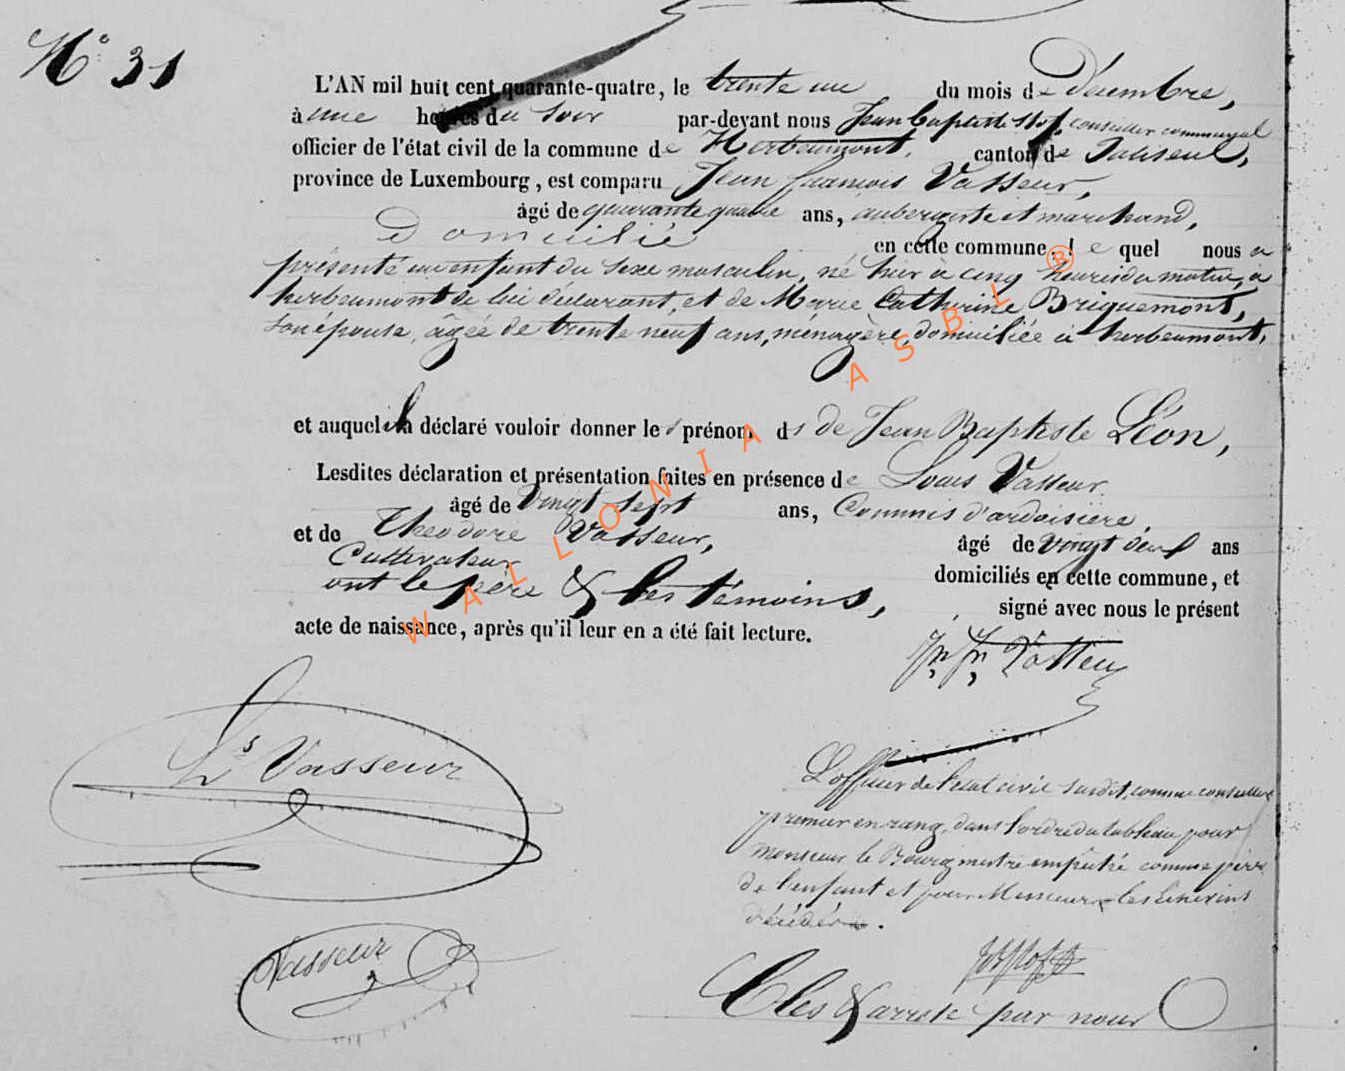 N° 31
L'AN mil huit cent quarante-quatre, le trente un du mois de Décembre,
à une heures du soir par-devant nous Jean Baptiste Stof, conseiller communal
officier de l'état civil de la commune de Herbeumont, canton de Paliseul,
province de Luxembourg, est comparu Jean François Vasseur,
âgé de quarante quatre ans, aubergiste et marchand,
Domicilié en cette commune, le quel nous a
présenté un enfant du sexe masculin, né hier à cinq heures du matin, à
herbeumont de lui déclarant, et de Marie Catherine Briquemont,
son épouse, âgée de trente neuf ans, ménagère, domiciliée à herbeumont,
et auquel il a déclaré vouloir donner les prénom ds de Jean Baptiste Léon,
Lesdites déclaration et présentation faites en présence de Louis Vasseur
âgé de vingt sept ans, Commis d'ardoisière,
et de Théodore Vasseur, âgé de vingt deux ans
Cultivateur domiciliés en cette commune, et
ont le père & les témoins, signé avec nous le présent
acte de naissance, après qu'il leur en a été fait lecture.
Jn. Fn. Vasseur
Ls Vasseur
L'officier de l'état civil susdit, comme conseiller
premier en rang, dans l'ordre du tableau pour
monsieur le Bourgmestre empêché comme père
de l'enfant et pour Messieurs les Echevins
décédés.
Vasseur
Clos & arrêté par nous
WALLONIA ASBL ®